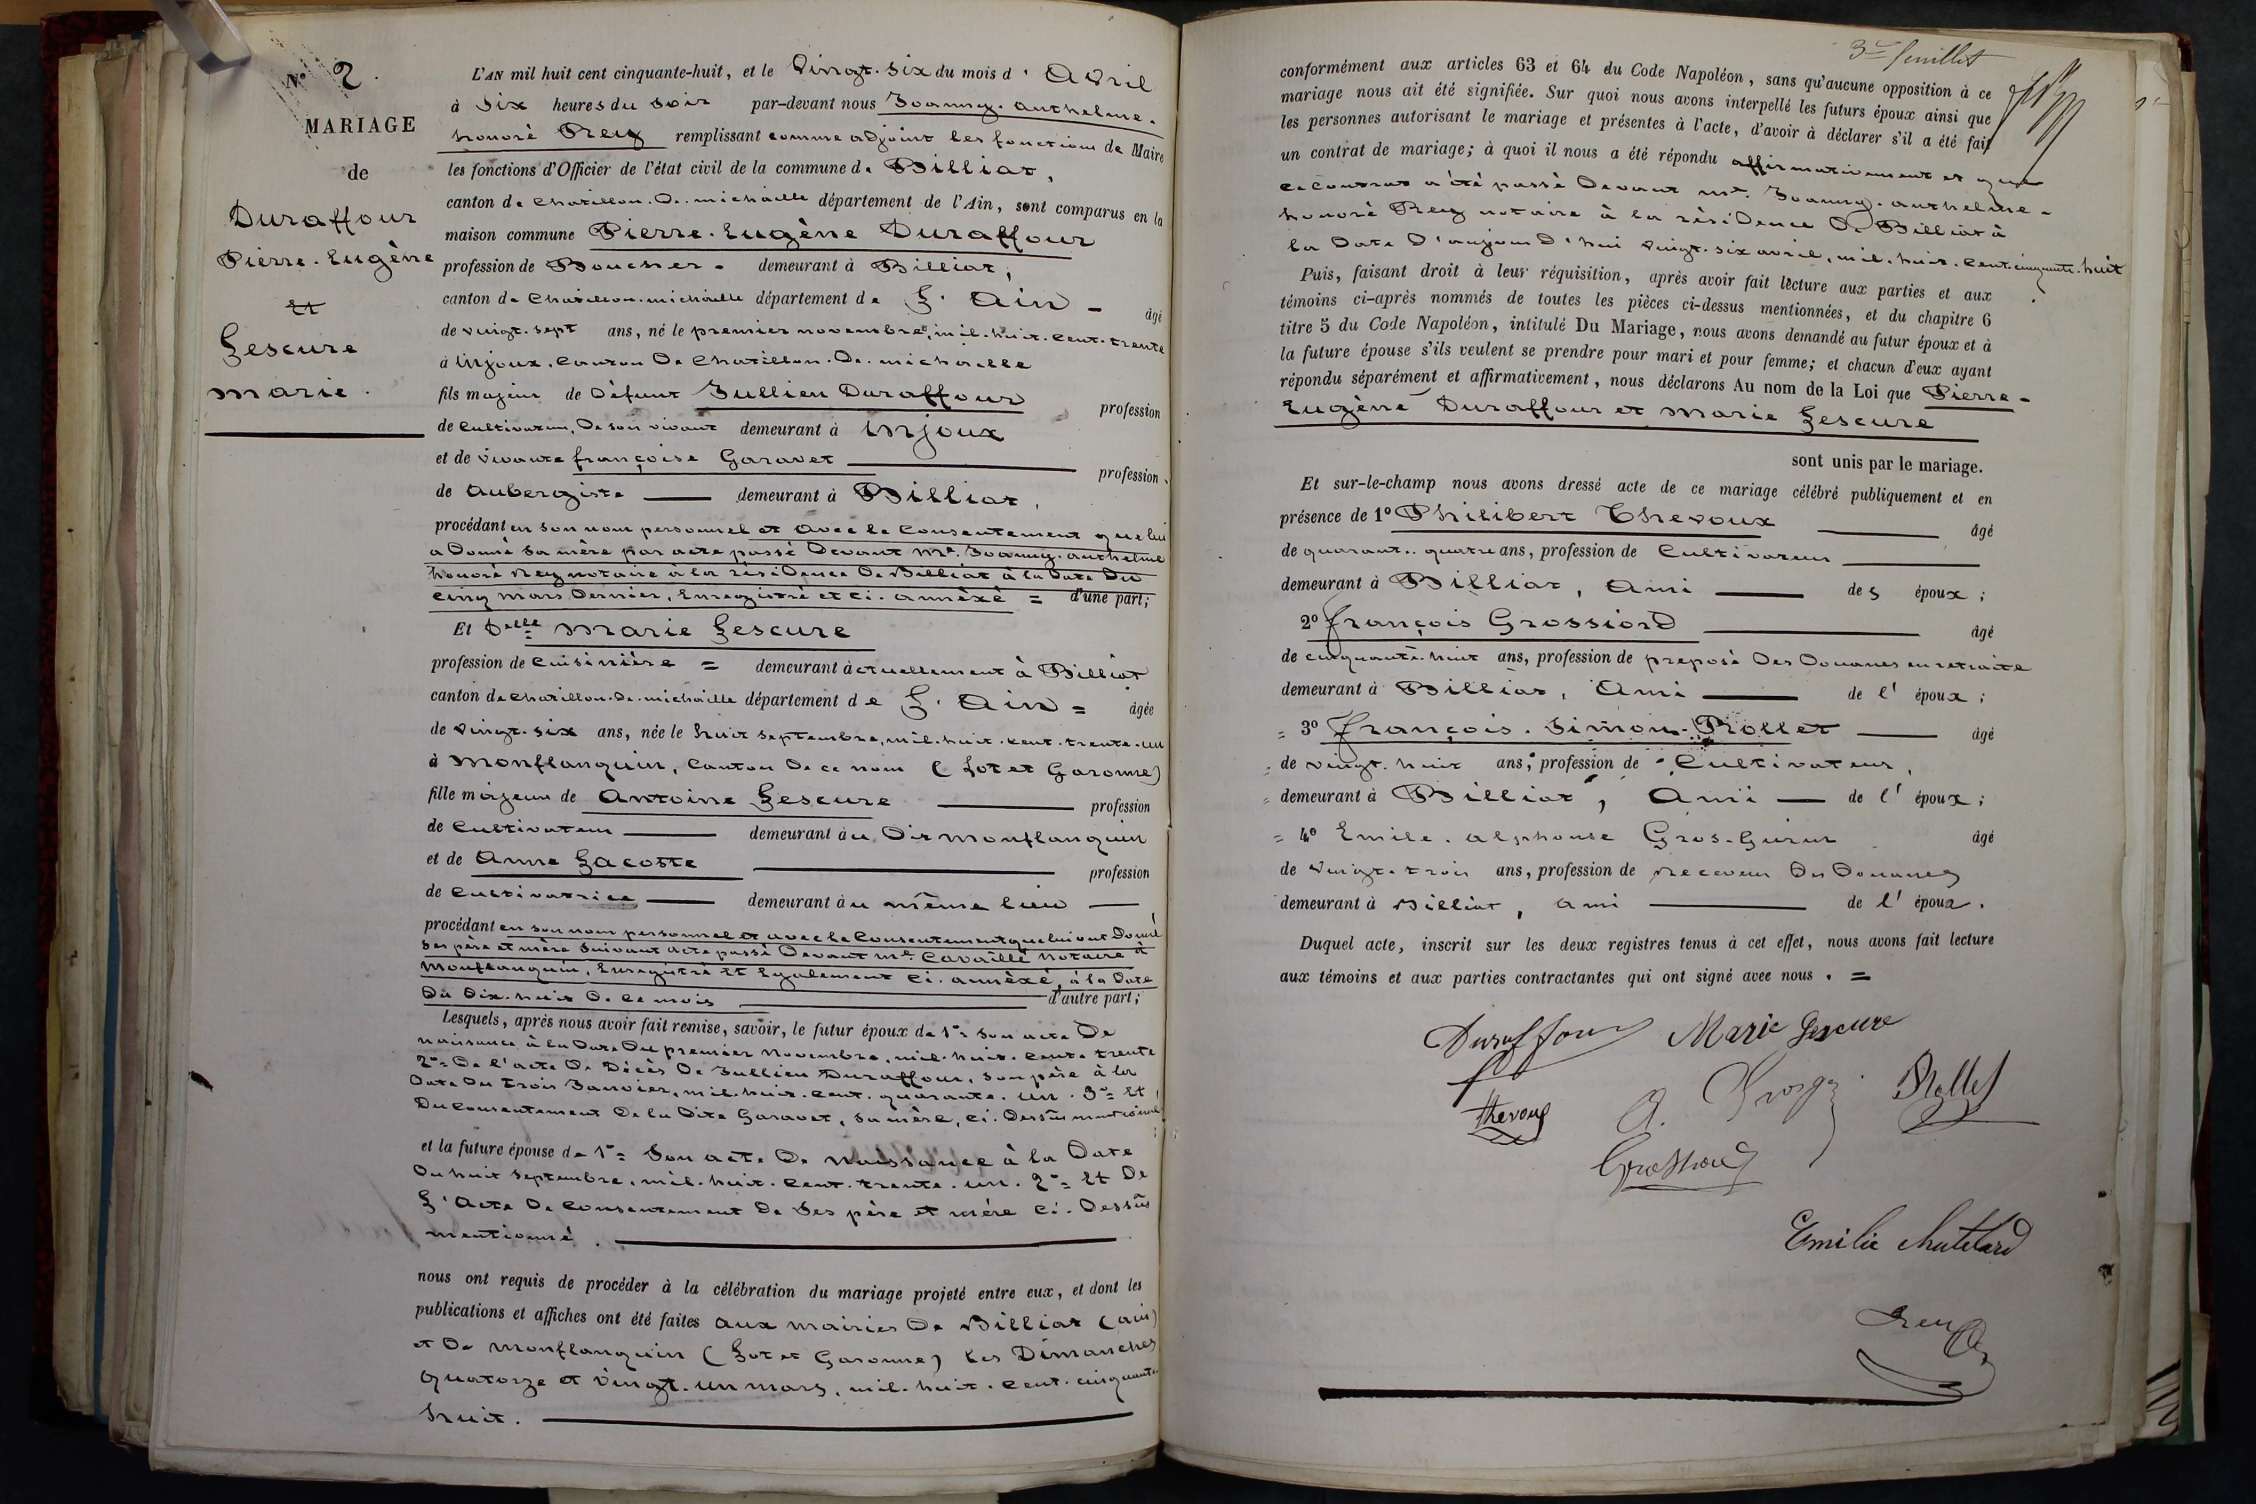 N° 2.
MARIAGE
de
Duraffour
Pierre-Eugène
et
Lescure
marie.
L'AN mil huit cent cinquante-huit, et le Vingt-six du mois d'Avril
à Six heures du soir par-devant nous Joanny-anthelme-
honoré Rey remplissant comme adjoint les fonctions de Maire
les fonctions d'Officier de l'état civil de la commune de Billiat,
canton de Chatillon-De-michaille département de l'Ain, sont comparus en la
maison commune Pierre-Eugène Duraffour
profession de Boucher - demeurant à Billiat,
canton de Chatillon-michaille département de L'Ain - âgé
de vingt-sept ans, né le premier novembre, mil-huit-cent-trente
à Injoux, canton De Chatillon-De-michaille
fils majeur de Défunt Jullien Duraffour profession
de Cultivateur, De son vivant demeurant à Injoux
et de vivante françoise Garavet profession
de Aubergiste demeurant à Billiat,
procédant en son nom personnel et avec le Consentement que lui
a Donné sa mère par acte passé Devant Me. Joanny-anthelme
honoré Rey notaire à la résidence De Billiat à la Date Du
cinq mars Dernier, Enregistré et ci-annèxé = d'une part;
Et Delle marie Lescure
profession de Cuisinière = demeurant actuellement à Billiat
canton de Chatillon-De-michaille département de L'Ain = âgée
de vingt-six ans, née le huit septembre, mil-huit-cent-trente-un
à Monflanquin, Canton De ce nom (Lot et Garonne)
fille majeure de Antoine Lescure profession
de Cultivateur demeurant au Dit Monflanquin
et de Anne Lacoste profession
de Cultivatrice demeurant au même lieu
procédant en son nom personnel et avec le Consentement que lui ont Donné
ses père et mère suivant acte passé Devant Me. Cavaillé Notaire à
Monflanquin, Enregistré et Egalement ci-annèxé, à la Date
Du Dix-huit De ce mois d'autre part;
Lesquels, après nous avoir fait remise, savoir, le futur époux de 1°= son acte De
naissance à la Date Du premier Novembre, mil-huit-cent-trente
2°= De l'acte De Décès De Jullien Duraffour, son père à la
Date Du trois Janvier, mil-huit-cent-quarante-un. 3°= Et
Du consentement De la Dite Garavet, sa mère, ci-Dessus mentionné
et la future épouse de 1°= Son acte De naissance à la Date
Du huit septembre, mil-huit-cent-trente-un. 2°= Et De
L'Acte De Consentement De Ses père et mère ci-Dessus
mentionné.
nous ont requis de procéder à la célébration du mariage projeté entre eux, et dont les
publications et affiches ont été faites aux mairies De Billiat (ain)
et De Monflanquin (Lot et Garonne) les Dimanches
quatorze et vingt-un mars, mil-huit-cent-cinquante
huit.
3me feuillet
conformément aux articles 63 et 64 du Code Napoléon, sans qu'aucune opposition à ce
mariage nous ait été signifiée. Sur quoi nous avons interpellé les futurs époux ainsi que
les personnes autorisant le mariage et présentes à l'acte, d'avoir à déclarer s'il a été fait
un contrat de mariage; à quoi il nous a été répondu affirmativement et que
ce contrat a été passé Devant Me. Joanny-anthelme-
honoré Rey notaire à la résidence De Billiat à
la Date D'aujourD'hui vingt-six avril, mil-huit-cent-cinquante-huit
Puis, faisant droit à leur réquisition, après avoir fait lecture aux parties et aux
témoins ci-après nommés de toutes les pièces ci-dessus mentionnées, et du chapitre 6
titre 5 du Code Napoléon, intitulé Du Mariage, nous avons demandé au futur époux et à
la future épouse s'ils veulent se prendre pour mari et pour femme; et chacun d'eux ayant
répondu séparément et affirmativement, nous déclarons Au nom de la Loi que Pierre-
Eugène Duraffour et Marie Lescure
sont unis par le mariage.
Et sur-le-champ nous avons dressé acte de ce mariage célébré publiquement et en
présence de 1° Philibert Thevoux âgé
de quarante-quatre ans, profession de Cultivateur
demeurant à Billiat, Ami des époux;
2° François Grossiord âgé
de cinquante-huit ans, profession de preposé Des Douanes en retraite
demeurant à Billiat, Ami de l'époux;
= 3° François-Simon-Rollet âgé
= de vingt-huit ans, profession de Cultivateur,
= demeurant à Billiat, Ami de l'époux;
= 4° Emile-alphonse Gros-Gurin âgé
de vingt-trois ans, profession de receveur Des Douanes
demeurant à Billiat, ami de l'époux.
Duquel acte, inscrit sur les deux registres tenus à cet effet, nous avons fait lecture
aux témoins et aux parties contractantes qui ont signé avec nous. =
Duraffour Marie Lescure
Thevoux Rollet
Grossiord
Emilie
Rey